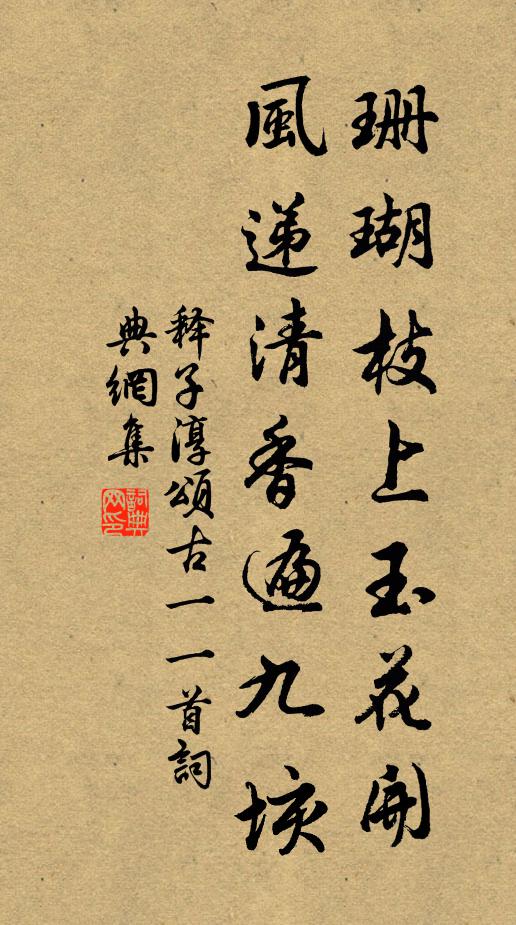 珊瑚枝上玉花開
風递清香遍九垓
释子淳頌古一一首詞
典網集
詞典网印